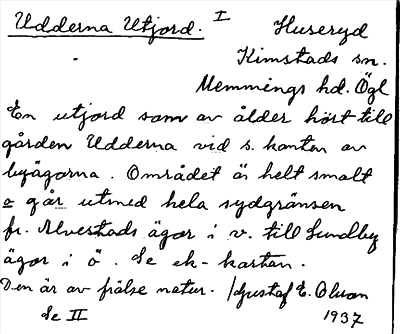 Udderna Utjord. I Huseryd
Kimstads sn.
Memmings hd. Ögl
En utjord som av ålder hört till
gården Udderna vid s. kanten av
byägorna. Området är helt smalt
o går utmed hela sydgränsen
fr. Alvestads ägor i v. till Lundby
ägor i ö. Se ek-kartan.
Den är av frälse natur. /Gustaf E. Olsson
Se II 1937